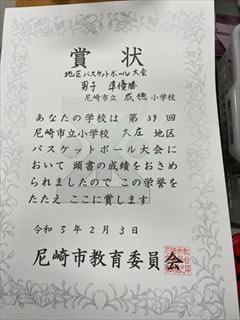 賞状
地区バスケットボール大会
男子 準優勝
尼崎市立 成徳 小学校
あなたの学校は 第39回
尼崎市立小学校 大庄 地区
バスケットボール大会に
おいて 頭書の成績をおさめ
られましたので この栄誉を
たたえ ここに賞します
令和5年2月3日
尼崎市教育委員会